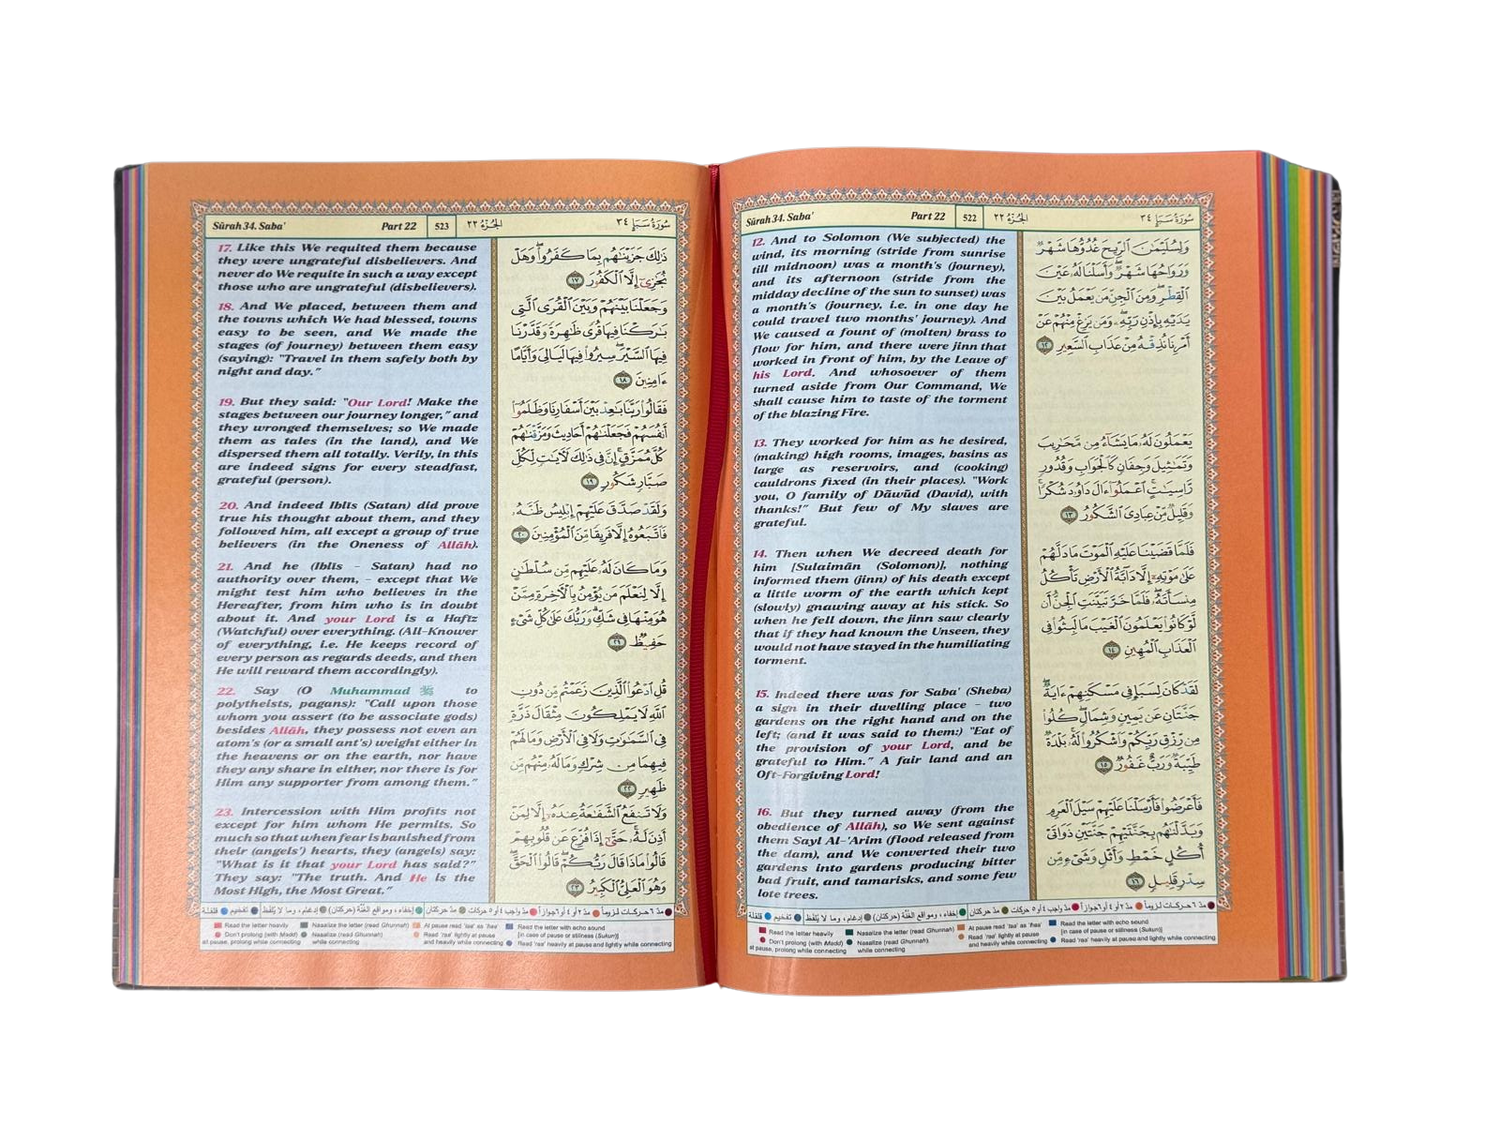 Sûrah 34. Saba'
Part 22
522
الجزء ٢٢
سورة سبإ ٣٤
12. And to Solomon (We subjected) the
wind, its morning (stride from sunrise
till midnoon) was a month's (journey),
and its afternoon (stride from the
midday decline of the sun to sunset) was
a month's (journey, i.e. in one day he
could travel two months' journey). And
We caused a fount of (molten) brass to
flow for him, and there were jinn that
worked in front of him, by the Leave of
his Lord. And whosoever of them
turned aside from Our Command, We
shall cause him to taste of the torment
of the blazing Fire.
13. They worked for him as he desired,
(making) high rooms, images, basins as
large as reservoirs, and (cooking)
cauldrons fixed (in their places). "Work
you, O family of Dāwūd (David), with
thanks!" But few of My slaves are
grateful.
14. Then when We decreed death for
him [Sulaimān (Solomon)], nothing
informed them (jinn) of his death except
a little worm of the earth which kept
(slowly) gnawing away at his stick. So
when he fell down, the jinn saw clearly
that if they had known the Unseen, they
would not have stayed in the humiliating
torment.
15. Indeed there was for Saba' (Sheba)
a sign in their dwelling place – two
gardens on the right hand and on the
left; (and it was said to them:) "Eat of
the provision of your Lord, and be
grateful to Him." A fair land and an
Oft-Forgiving Lord!
16. But they turned away (from the
obedience of Allāh), so We sent against
them Sayl Al-'Arim (flood released from
the dam), and We converted their two
gardens into gardens producing bitter
bad fruit, and tamarisks, and some few
lote trees.
وَلِسُلَيْمَٰنَ ٱلرِّيحَ غُدُوُّهَا شَهْرٌ
وَرَوَاحُهَا شَهْرٌ ۖ وَأَسَلْنَا لَهُۥ عَيْنَ
ٱلْقِطْرِ ۖ وَمِنَ ٱلْجِنِّ مَن يَعْمَلُ بَيْنَ
يَدَيْهِ بِإِذْنِ رَبِّهِۦ ۖ وَمَن يَزِغْ مِنْهُمْ عَنْ
أَمْرِنَا نُذِقْهُ مِنْ عَذَابِ ٱلسَّعِيرِ ١٢
يَعْمَلُونَ لَهُۥ مَا يَشَآءُ مِن مَّحَٰرِيبَ
وَتَمَٰثِيلَ وَجِفَانٍ كَٱلْجَوَابِ وَقُدُورٍ
رَّاسِيَٰتٍ ۚ ٱعْمَلُوٓا۟ ءَالَ دَاوُۥدَ شُكْرًا ۚ
وَقَلِيلٌ مِّنْ عِبَادِىَ ٱلشَّكُورُ ١٣
فَلَمَّا قَضَيْنَا عَلَيْهِ ٱلْمَوْتَ مَا دَلَّهُمْ
عَلَىٰ مَوْتِهِۦٓ إِلَّا دَآبَّةُ ٱلْأَرْضِ تَأْكُلُ
مِنسَأَتَهُۥ ۖ فَلَمَّا خَرَّ تَبَيَّنَتِ ٱلْجِنُّ أَن
لَّوْ كَانُوا۟ يَعْلَمُونَ ٱلْغَيْبَ مَا لَبِثُوا۟ فِى
ٱلْعَذَابِ ٱلْمُهِينِ ١٤
لَقَدْ كَانَ لِسَبَإٍ فِى مَسْكَنِهِمْ ءَايَةٌ ۖ
جَنَّتَانِ عَن يَمِينٍ وَشِمَالٍ ۖ كُلُوا۟
مِن رِّزْقِ رَبِّكُمْ وَٱشْكُرُوا۟ لَهُۥ ۚ بَلْدَةٌ
طَيِّبَةٌ وَرَبٌّ غَفُورٌ ١٥
فَأَعْرَضُوا۟ فَأَرْسَلْنَا عَلَيْهِمْ سَيْلَ ٱلْعَرِمِ
وَبَدَّلْنَٰهُم بِجَنَّتَيْهِمْ جَنَّتَيْنِ ذَوَاتَىْ
أُكُلٍ خَمْطٍ وَأَثْلٍ وَشَىْءٍ مِّن
سِدْرٍ قَلِيلٍ ١٦
مدّ ٦ حركات لزوماً مدّ ٢ أو ٤ أو ٦ جوازاً مدّ واجب ٤ أو ٥ حركات مدّ حركتان إخفاء، ومواقع الغُنَّة (حركتان) إدغام، وما لا يُلفَظ تفخيم قلقلة
Read the letter heavily
Nasalize the letter (read Ghunnah)
At pause read 'taa' as 'haa'
Read the letter with echo sound
[in case of pause or stillness (Sukun)]
Don't prolong (with Madd)
at pause, prolong while connecting
Nasalize (read Ghunnah)
while connecting
Read 'raa' lightly at pause
and heavily while connecting
Read 'raa' heavily at pause and lightly while connecting
Sûrah 34. Saba'
Part 22
523
الجزء ٢٢
سورة سبإ ٣٤
17. Like this We requited them because
they were ungrateful disbelievers. And
never do We requite in such a way except
those who are ungrateful (disbelievers).
18. And We placed, between them and
the towns which We had blessed, towns
easy to be seen, and We made the
stages (of journey) between them easy
(saying): "Travel in them safely both by
night and day."
19. But they said: "Our Lord! Make the
stages between our journey longer," and
they wronged themselves; so We made
them as tales (in the land), and We
dispersed them all totally. Verily, in this
are indeed signs for every steadfast,
grateful (person).
20. And indeed Iblīs (Satan) did prove
true his thought about them, and they
followed him, all except a group of true
believers (in the Oneness of Allāh).
21. And he (Iblīs – Satan) had no
authority over them, – except that We
might test him who believes in the
Hereafter, from him who is in doubt
about it. And your Lord is a Hafīz
(Watchful) over everything. (All-Knower
of everything, i.e. He keeps record of
every person as regards deeds, and then
He will reward them accordingly).
22. Say (O Muhammad ﷺ to
polytheists, pagans): "Call upon those
whom you assert (to be associate gods)
besides Allāh, they possess not even an
atom's (or a small ant's) weight either in
the heavens or on the earth, nor have
they any share in either, nor there is for
Him any supporter from among them."
23. Intercession with Him profits not
except for him whom He permits. So
much so that when fear is banished from
their (angels') hearts, they (angels) say:
"What is it that your Lord has said?"
They say: "The truth. And He is the
Most High, the Most Great."
ذَٰلِكَ جَزَيْنَٰهُم بِمَا كَفَرُوا۟ ۖ وَهَلْ
نُجَٰزِىٓ إِلَّا ٱلْكَفُورَ ١٧
وَجَعَلْنَا بَيْنَهُمْ وَبَيْنَ ٱلْقُرَى ٱلَّتِى
بَٰرَكْنَا فِيهَا قُرًى ظَٰهِرَةً وَقَدَّرْنَا
فِيهَا ٱلسَّيْرَ ۖ سِيرُوا۟ فِيهَا لَيَالِىَ وَأَيَّامًا
ءَامِنِينَ ١٨
فَقَالُوا۟ رَبَّنَا بَٰعِدْ بَيْنَ أَسْفَارِنَا وَظَلَمُوٓا۟
أَنفُسَهُمْ فَجَعَلْنَٰهُمْ أَحَادِيثَ وَمَزَّقْنَٰهُمْ
كُلَّ مُمَزَّقٍ ۚ إِنَّ فِى ذَٰلِكَ لَءَايَٰتٍ لِّكُلِّ
صَبَّارٍ شَكُورٍ ١٩
وَلَقَدْ صَدَّقَ عَلَيْهِمْ إِبْلِيسُ ظَنَّهُۥ
فَٱتَّبَعُوهُ إِلَّا فَرِيقًا مِّنَ ٱلْمُؤْمِنِينَ ٢٠
وَمَا كَانَ لَهُۥ عَلَيْهِم مِّن سُلْطَٰنٍ
إِلَّا لِنَعْلَمَ مَن يُؤْمِنُ بِٱلْءَاخِرَةِ مِمَّنْ
هُوَ مِنْهَا فِى شَكٍّ ۗ وَرَبُّكَ عَلَىٰ كُلِّ شَىْءٍ
حَفِيظٌ ٢١
قُلِ ٱدْعُوا۟ ٱلَّذِينَ زَعَمْتُم مِّن دُونِ
ٱللَّهِ ۖ لَا يَمْلِكُونَ مِثْقَالَ ذَرَّةٍ
فِى ٱلسَّمَٰوَٰتِ وَلَا فِى ٱلْأَرْضِ وَمَا لَهُمْ
فِيهِمَا مِن شِرْكٍ وَمَا لَهُۥ مِنْهُم مِّن
ظَهِيرٍ ٢٢
وَلَا تَنفَعُ ٱلشَّفَٰعَةُ عِندَهُۥٓ إِلَّا لِمَنْ
أَذِنَ لَهُۥ ۚ حَتَّىٰٓ إِذَا فُزِّعَ عَن قُلُوبِهِمْ
قَالُوا۟ مَاذَا قَالَ رَبُّكُمْ ۖ قَالُوا۟ ٱلْحَقَّ ۖ
وَهُوَ ٱلْعَلِىُّ ٱلْكَبِيرُ ٢٣
مدّ ٦ حركات لزوماً مدّ ٢ أو ٤ أو ٦ جوازاً مدّ واجب ٤ أو ٥ حركات مدّ حركتان إخفاء، ومواقع الغُنَّة (حركتان) إدغام، وما لا يُلفَظ تفخيم قلقلة
Read the letter heavily
Nasalize the letter (read Ghunnah)
At pause read 'taa' as 'haa'
Read the letter with echo sound
[in case of pause or stillness (Sukun)]
Don't prolong (with Madd)
at pause, prolong while connecting
Nasalize (read Ghunnah)
while connecting
Read 'raa' lightly at pause
and heavily while connecting
Read 'raa' heavily at pause and lightly while connecting